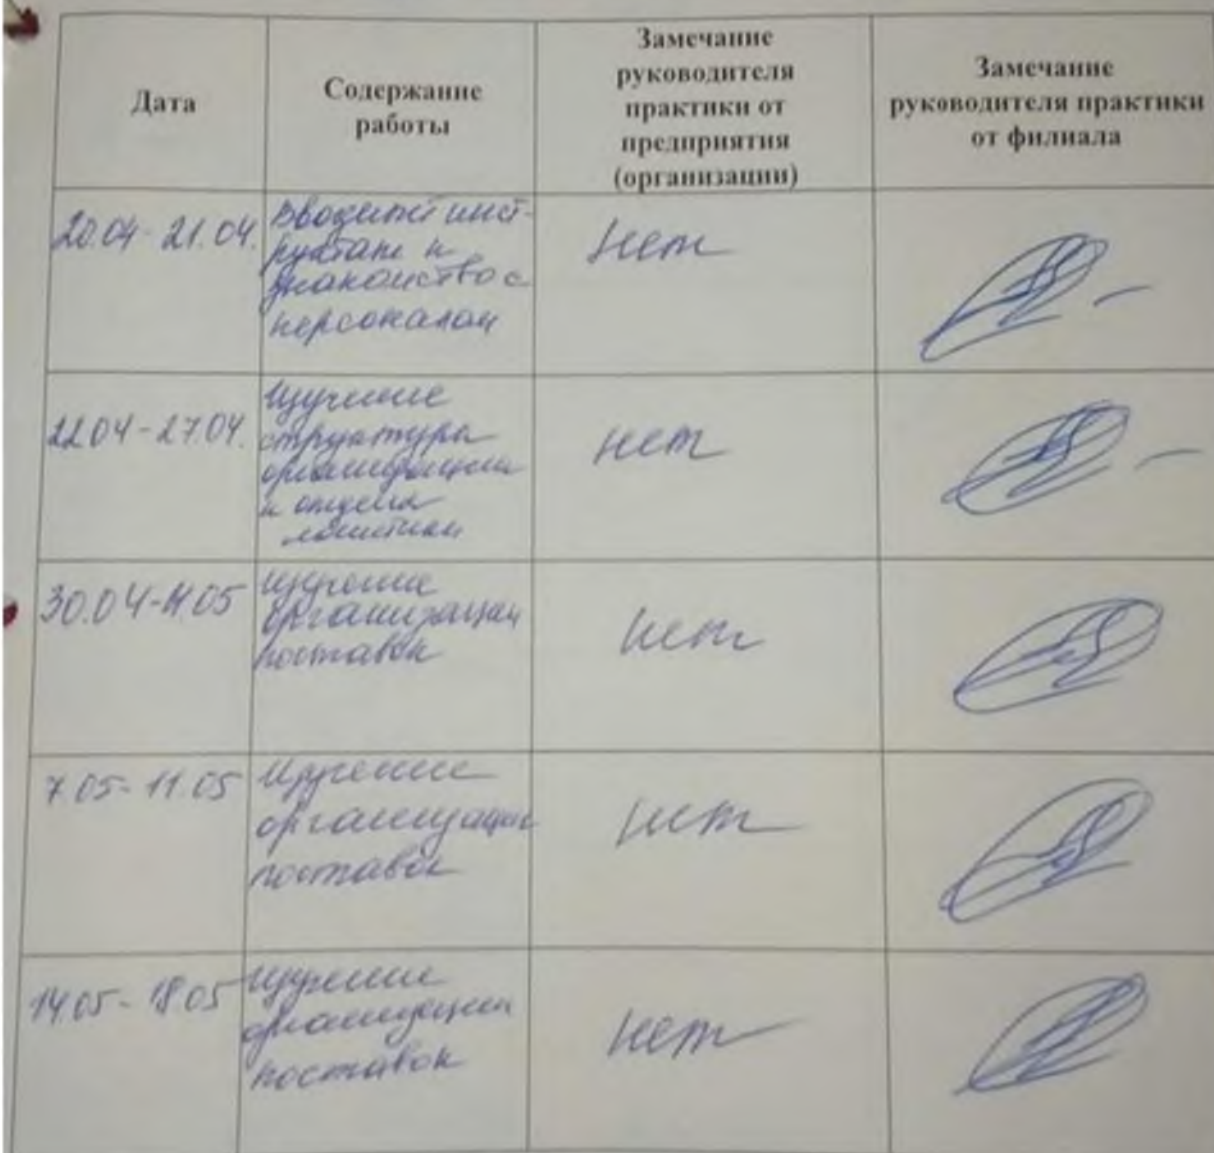 Дата
Содержание
работы
Замечание
руководителя
практики от
предприятия
(организации)
Замечание
руководителя практики
от филиала
20.04-21.04.
Вводный инст-
руктаж и
знакомство с
персоналом
нет
22.04-27.04.
Изучение
структуры
организации
и отдела
логистики
нет
30.04-4.05
Изучение
организации
поставок
нет
7.05-11.05
Изучение
организации
поставок
нет
14.05-18.05
Изучение
организации
поставок
нет